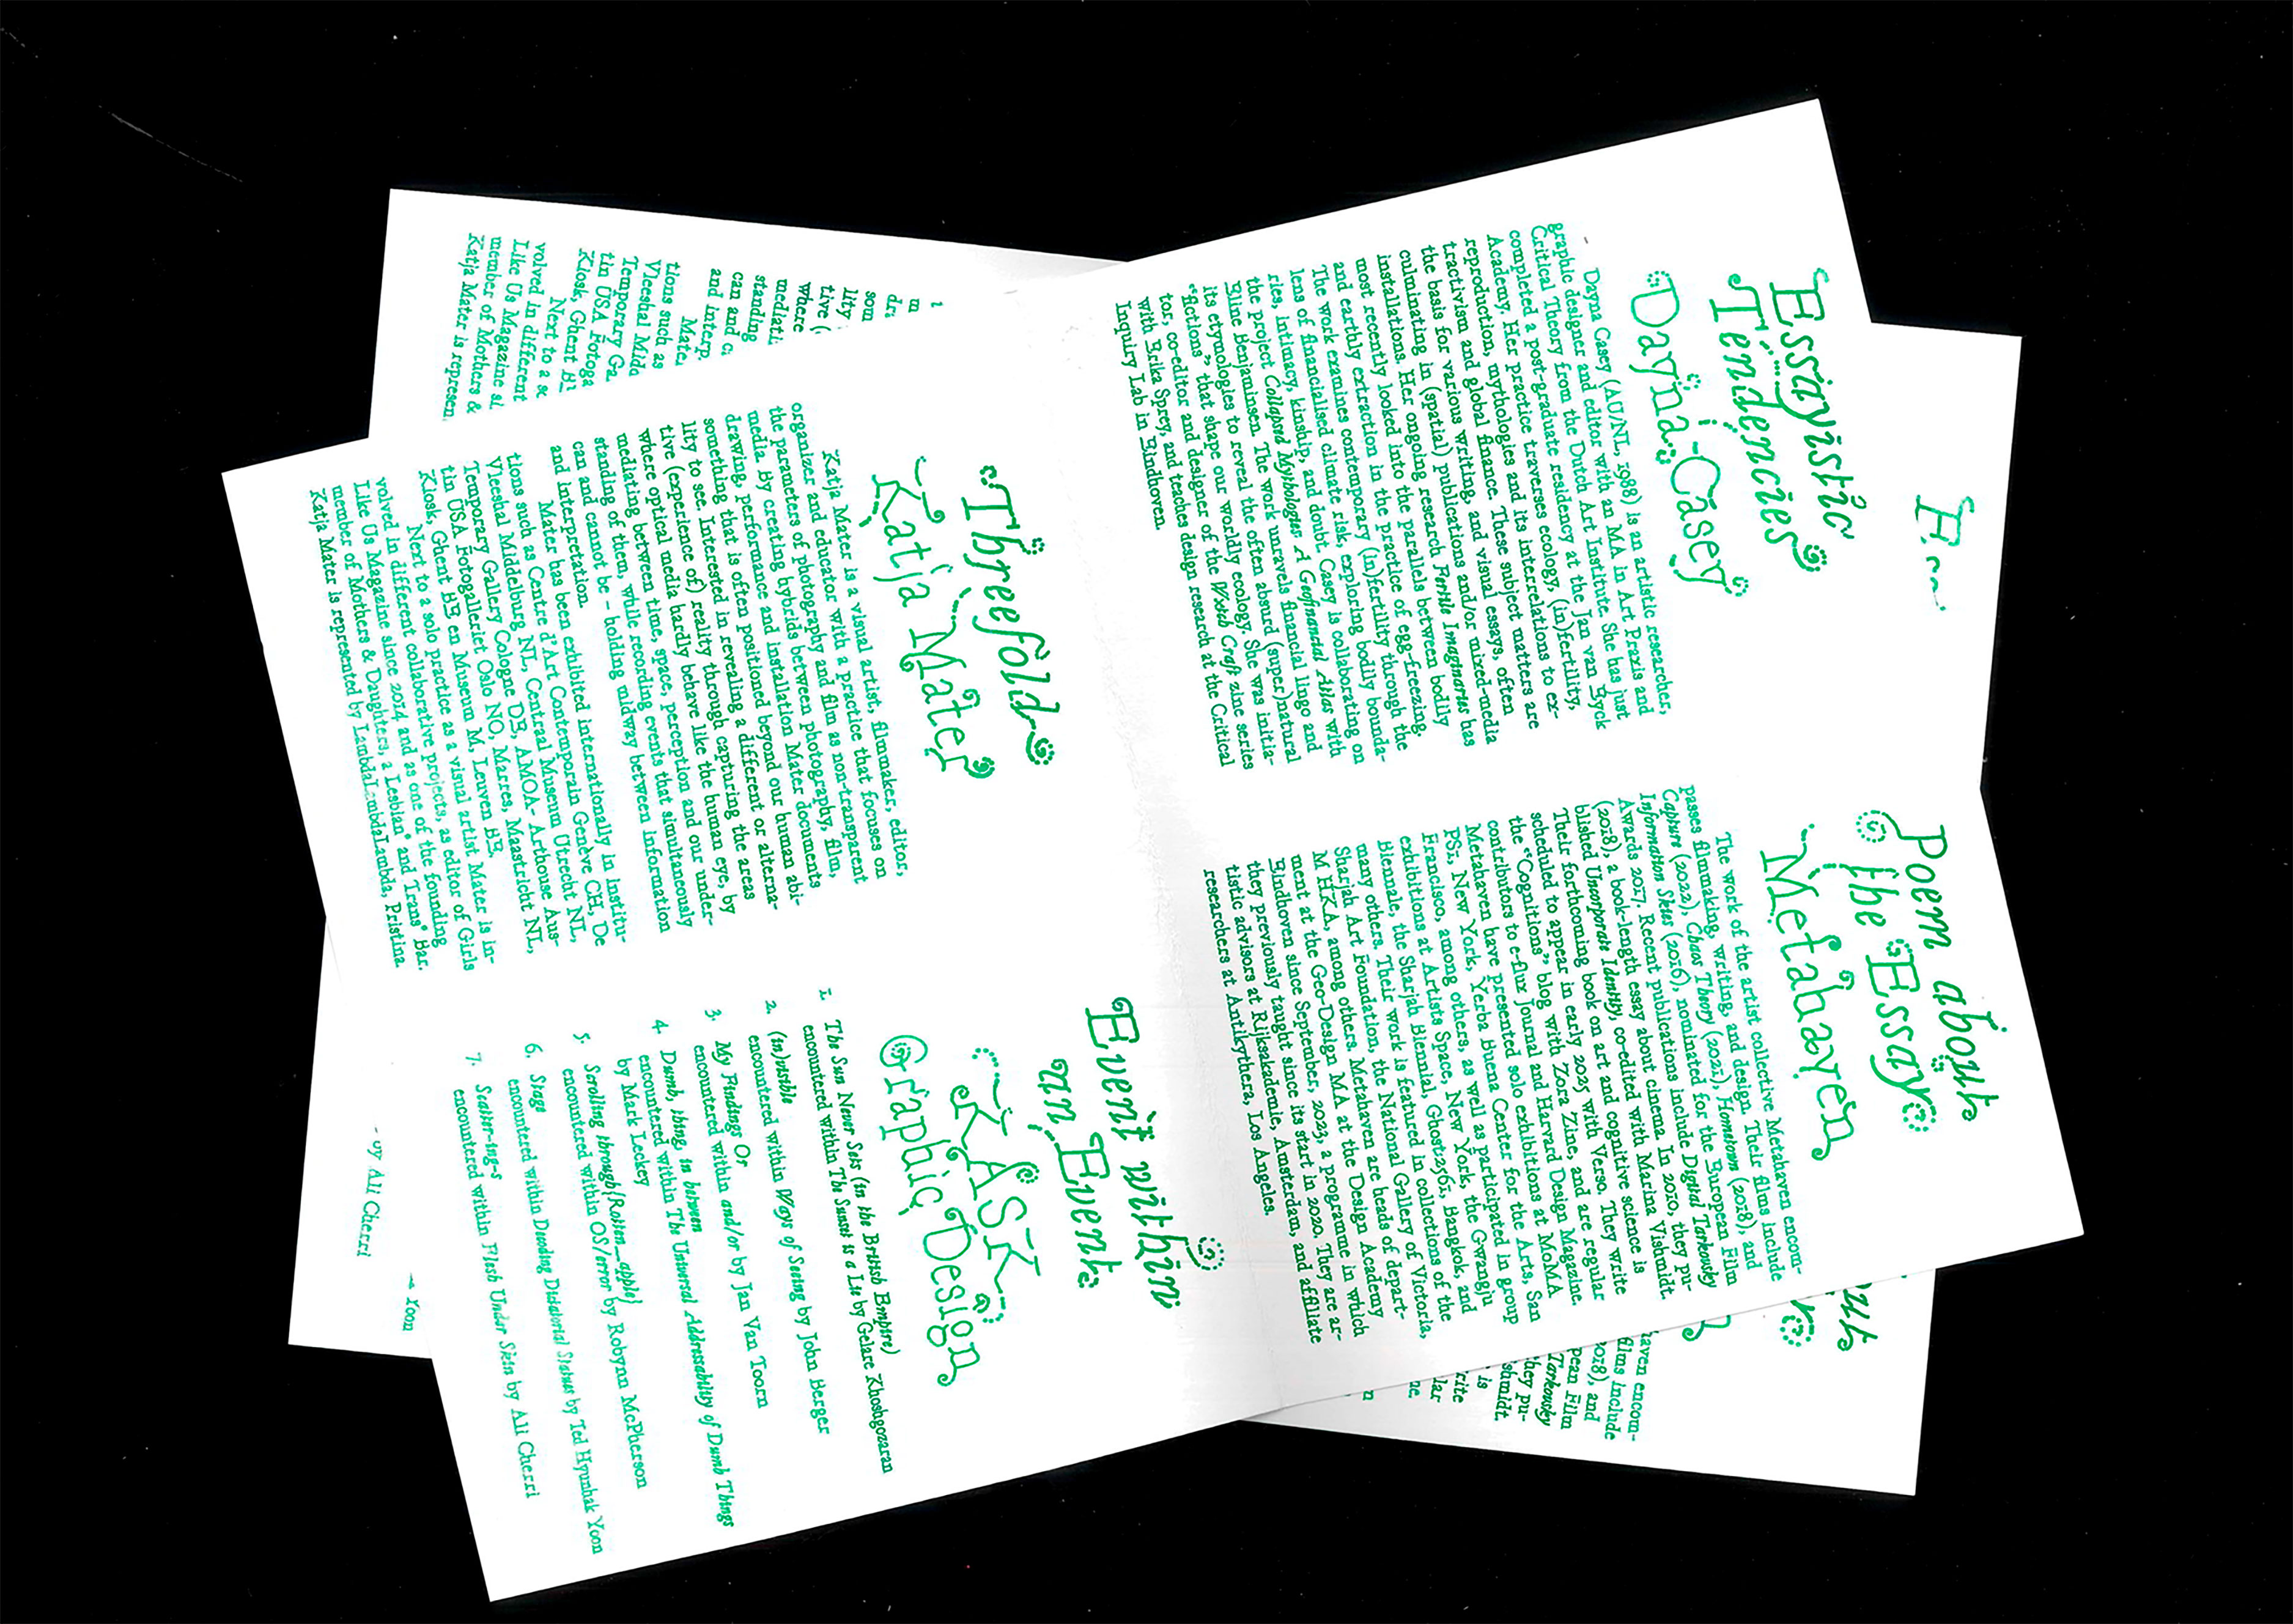 Essayistic
Tendencies
Dayna Casey
Dayna Casey (AU/NL, 1988) is an artistic researcher,
graphic designer and editor with an MA in Art Praxis and
Critical Theory from the Dutch Art Institute. She has just
completed a post-graduate residency at the Jan van Eyck
Academy. Her practice traverses ecology, (in)fertility,
reproduction, mythologies and its interrelations to ex-
tractivism and global finance. These subject matters are
the basis for various writing, and visual essays, often
culminating in (spatial) publications and/or mixed-media
installations. Her ongoing research Fertile Imaginaries has
most recently looked into the parallels between bodily
and earthly extraction in the practice of egg-freezing.
The work examines contemporary (in)fertility through the
lens of financialised climate risk, exploring bodily bounda-
ries, intimacy, kinship, and doubt. Casey is collaborating on
the project Collapsed Mythologies: A Geofinancial Atlas with
Eline Benjaminsen. The work unravels financial lingo and
its etymologies to reveal the often absurd (super)natural
“fictions” that shape our worldly ecology. She was initia-
tor, co-editor and designer of the Witch Craft zine series
with Erika Sprey, and teaches design research at the Critical
Inquiry Lab in Eindhoven.
Poem about
the Essay
Metahaven
The work of the artist collective Metahaven encom-
passes filmmaking, writing, and design. Their films include
Capture (2022), Chaos Theory (2021), Hometown (2018), and
Information Skies (2016), nominated for the European Film
Awards 2017. Recent publications include Digital Tarkovsky
(2018), a book-length essay about cinema. In 2020, they pu-
blished Uncorporate Identity, co-edited with Marina Vishmidt.
Their forthcoming book on art and cognitive science is
scheduled to appear in early 2025 with Verso. They write
the “Cognitions” blog with Zora Zine, and are regular
contributors to e-flux journal and Harvard Design Magazine.
Metahaven have presented solo exhibitions at MoMA
PS1, New York, Yerba Buena Center for the Arts, San
Francisco, among others, as well as participated in group
exhibitions at Artists Space, New York, the Gwangju
Biennale, the Sharjah Biennial, Ghost:2561, Bangkok, and
many others. Their work is featured in collections of the
Sharjah Art Foundation, the National Gallery of Victoria,
M HKA, among others. Metahaven are heads of depart-
ment at the Geo-Design MA at the Design Academy
Eindhoven since September, 2023, a programme in which
they previously taught since its start in 2020. They are ar-
tistic advisors at Rijksakademie, Amsterdam, and affiliate
researchers at Antikythera, Los Angeles.
Threefold
Katja Mater
Katja Mater is a visual artist, filmmaker, editor,
organizer and educator with a practice that focuses on
the parameters of photography and film as non-transparent
media. By creating hybrids between photography, film,
drawing, performance and installation Mater documents
something that is often positioned beyond our human abi-
lity to see. Interested in revealing a different or alterna-
tive (experience of) reality through capturing the areas
where optical media hardly behave like the human eye, by
mediating between time, space, perception and our under-
standing of them, while recording events that simultaneously
can and cannot be – holding midway between information
and interpretation.
Mater has been exhibited internationally in institu-
tions such as Centre d'Art Contemporain Genève CH, De
Vleeshal Middelburg NL, Centraal Museum Utrecht NL,
Temporary Gallery Cologne DE, AMOA- Arthouse Aus-
tin USA Fotogalleriet Oslo NO, Marres, Maastricht NL,
Kiosk, Ghent BE en Museum M, Leuven BE.
Next to a solo practice as a visual artist Mater is in-
volved in different collaborative projects, as editor of Girls
Like Us Magazine since 2014 and as one of the founding
member of Mothers & Daughters, a Lesbian* and Trans* Bar.
Katja Mater is represented by LambdaLambdaLambda, Pristina.
Event within
an Event
KASK
Graphic Design
1. The Sun Never Sets (in the British Empire)
encountered within The Sunset is a Lie by Gelare Khoshgozaran
2. (in)visible
encountered within Ways of Seeing by John Berger
3. My Findings Or
encountered within and/or by Jan Van Toorn
4. Dumb, thing, in between
encountered within The Universal Addressability of Dumb Things
by Mark Leckey
5. Scrolling through{Rotten_apple}
encountered within OS/error by Robynn McPherson
6. Stage
encountered within Decoding Dictatorial Statues by Ted Hyunhak Yoon
7. Scatter-ing-s
encountered within Flesh Under Skin by Ali Cherri
som
lity
tive (
where
mediati
standing
can and c
and interp
Mate
tions such as
Vleeshal Midd
Temporary Ga
tin USA Fotoga
Kiosk, Ghent B
Next to a s
volved in different
Like Us Magazine si
member of Mothers &
Katja Mater is represen
haven encom-
films include
2018), and
pean Film
Tarkovsky
hey pu-
shmidt.
is
rite
lar
ne.
Yoon
by Ali Cherri